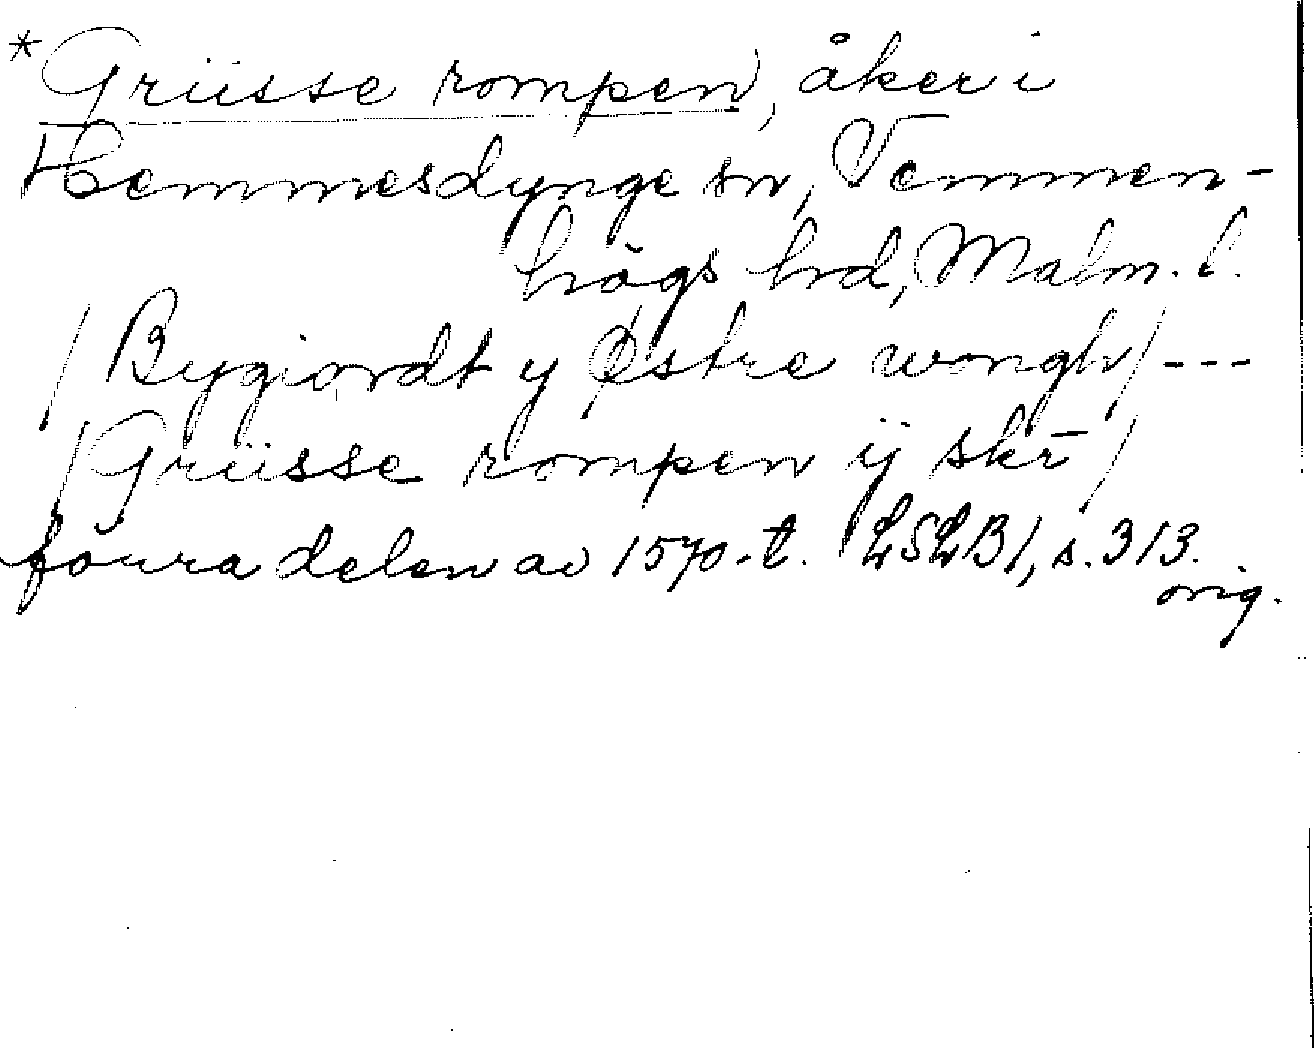 *Grüsse rompen, åker i
Hemmesdynge sn, Vemmen-
högs hd, Malm. l.
/Bygiordt y Østre wongh/---
/Grüsse rompen ij skr̄/
förra delen av 1570-t. LSLB1, s. 313.
orig.